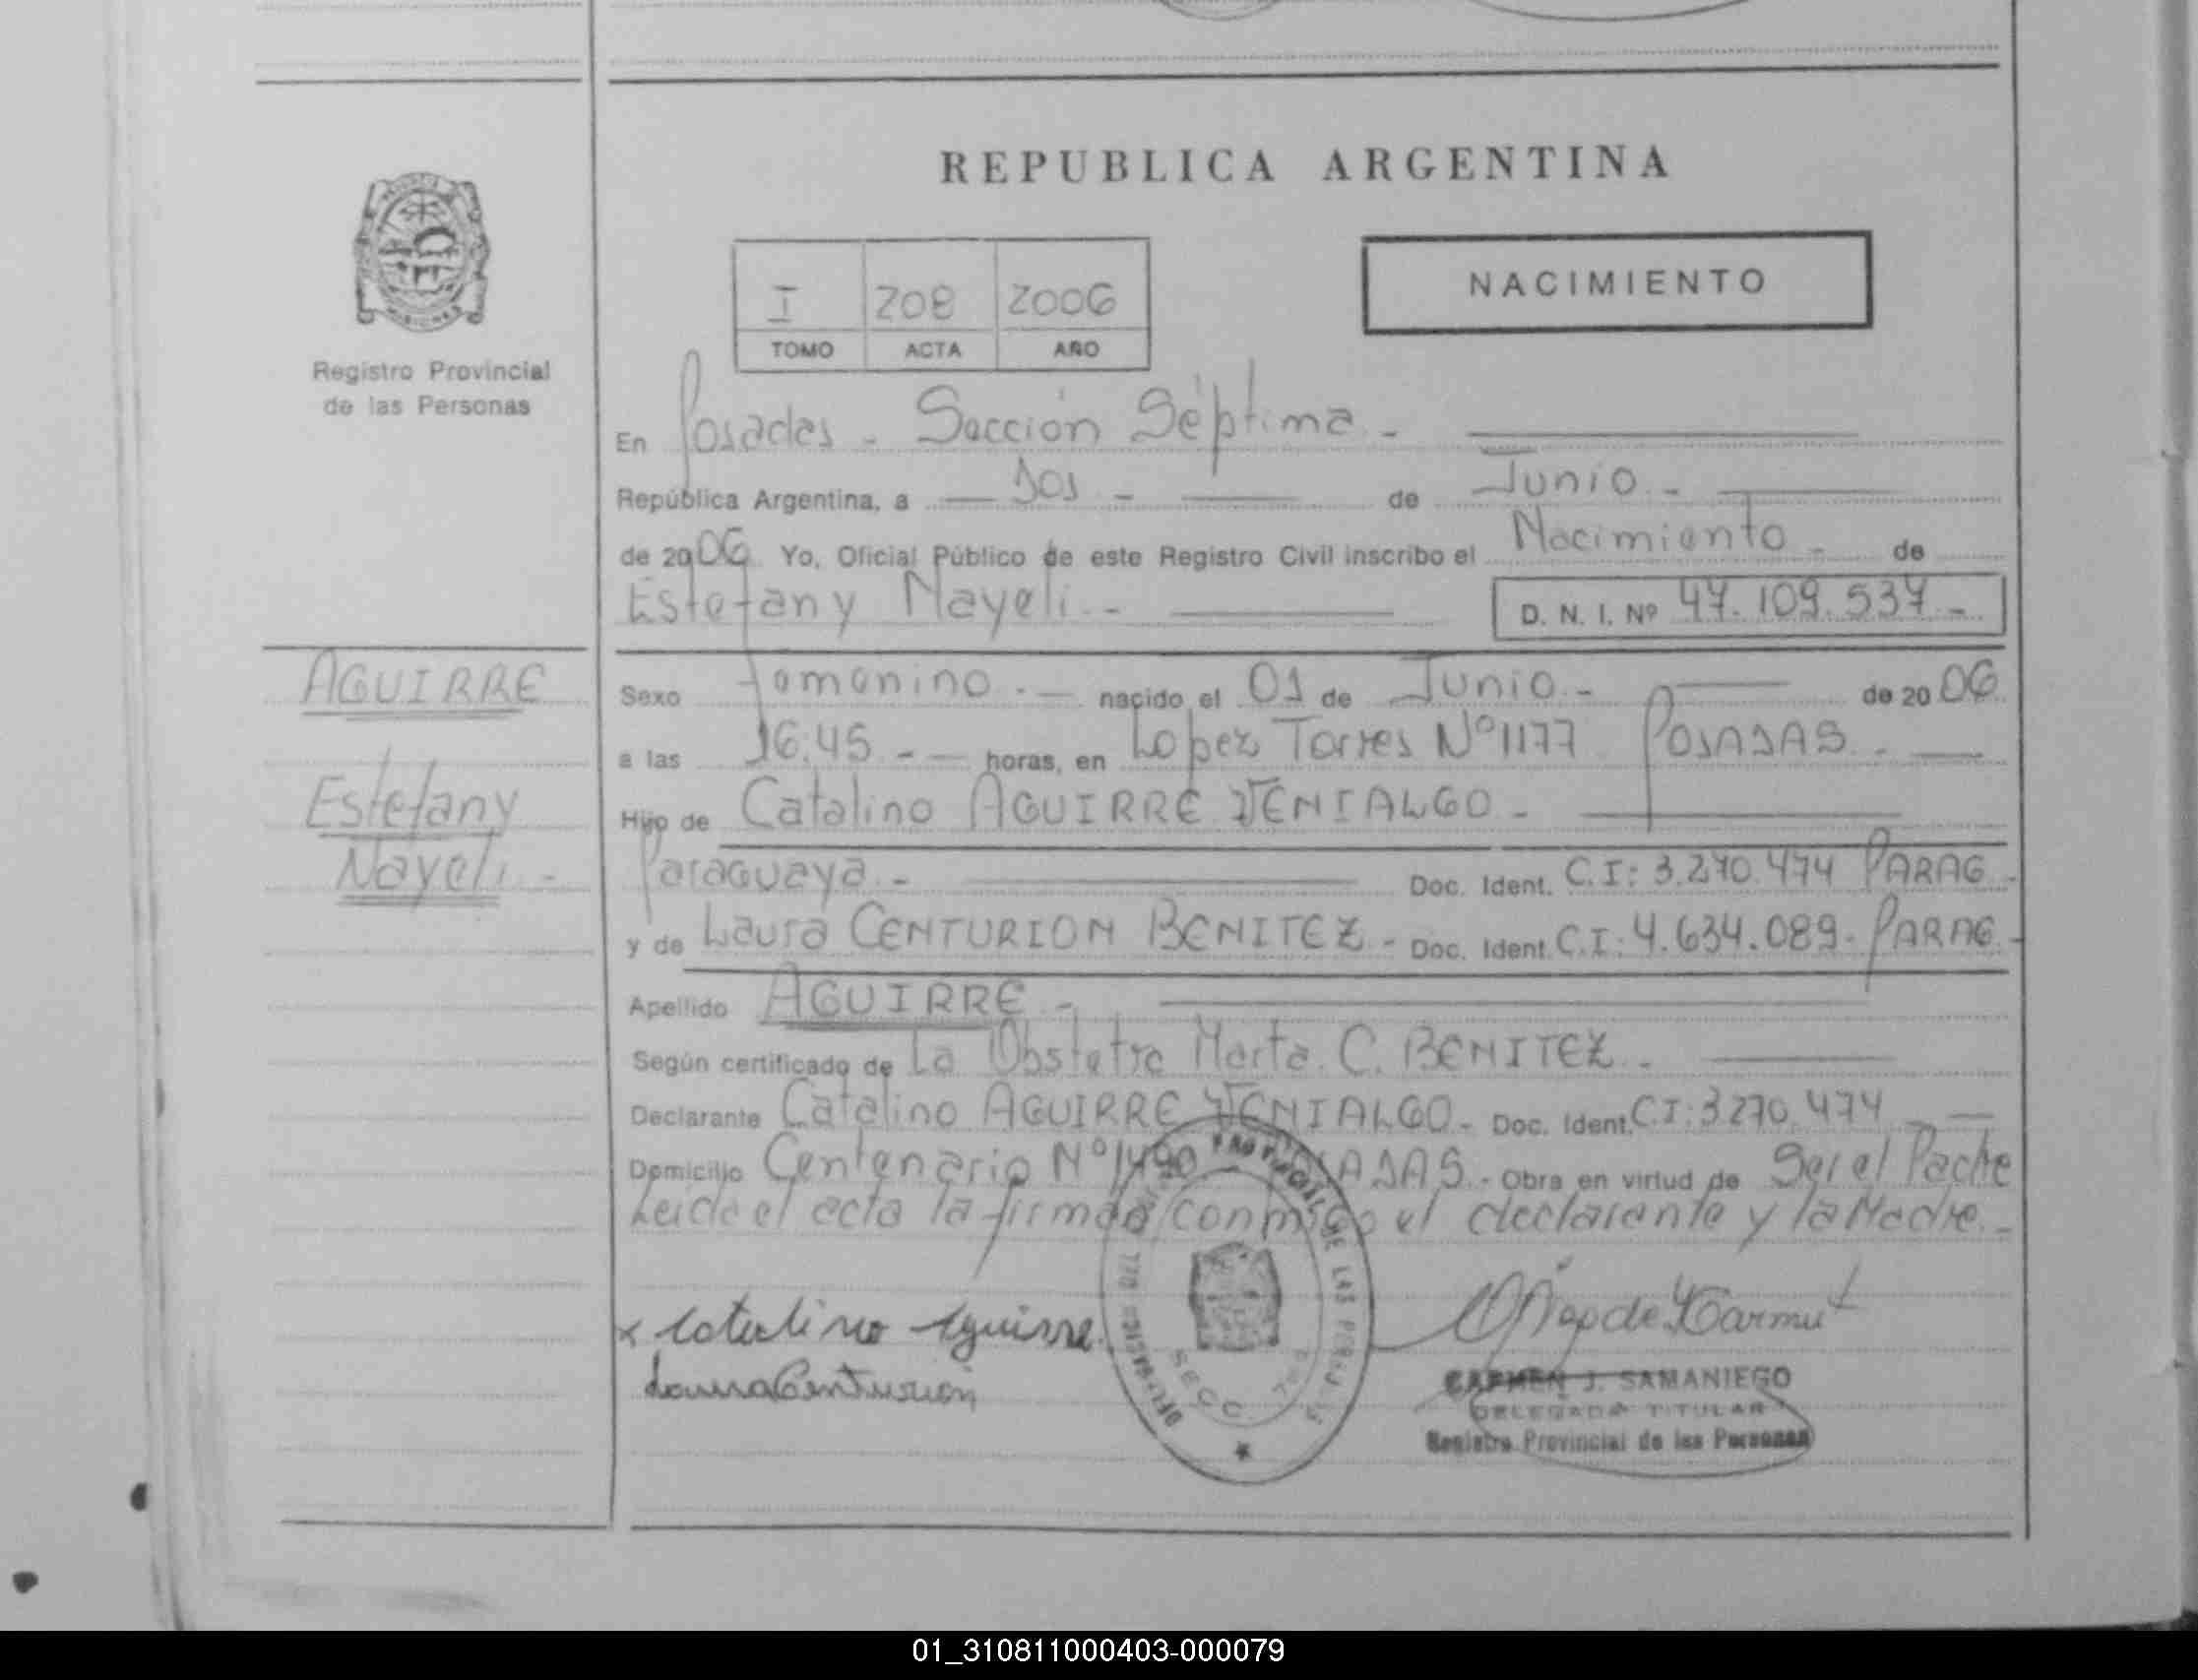 REPUBLICA ARGENTINA
NACIMIENTO
I 208 2006
TOMO ACTA AÑO
Registro Provincial
de las Personas
En Posadas - Sección Séptima -
República Argentina, a dos - de Junio -
de 2006 Yo, Oficial Público de este Registro Civil inscribo el Nacimiento - de
Estefany Nayeli - D. N. I. Nº 47.109.537 -
AGUIRRE
Estefany
Nayeli -
Sexo femenino - nacido el 01 de Junio - de 2006
a las 16:45 - horas, en Lopez Torres Nº 1177 POSADAS -
Hijo de Catalino AGUIRRE VENIALGO -
Paraguaya - Doc. Ident. C.I: 3.270.474 PARAG -
y de Laura CENTURION BENITEZ - Doc. Ident. C.I: 4.634.089 - PARAG -
Apellido AGUIRRE -
Según certificado de La Obstetra Marta C. BENITEZ -
Declarante Catalino AGUIRRE VENIALGO - Doc. Ident. C.I: 3270.474
Domicilio Centenario Nº 1490 POSADAS - Obra en virtud de Ser el Padre
Leida el acta la firman conmigo el declarante y la Madre -
x Catalino Aguirre
Laura Centurión
PROVINCIAL DE LAS PERSONAS
SECC 7
CARMEN J. SAMANIEGO
DELEGADA TITULAR
Registro Provincial de las Personas
01_310811000403-000079